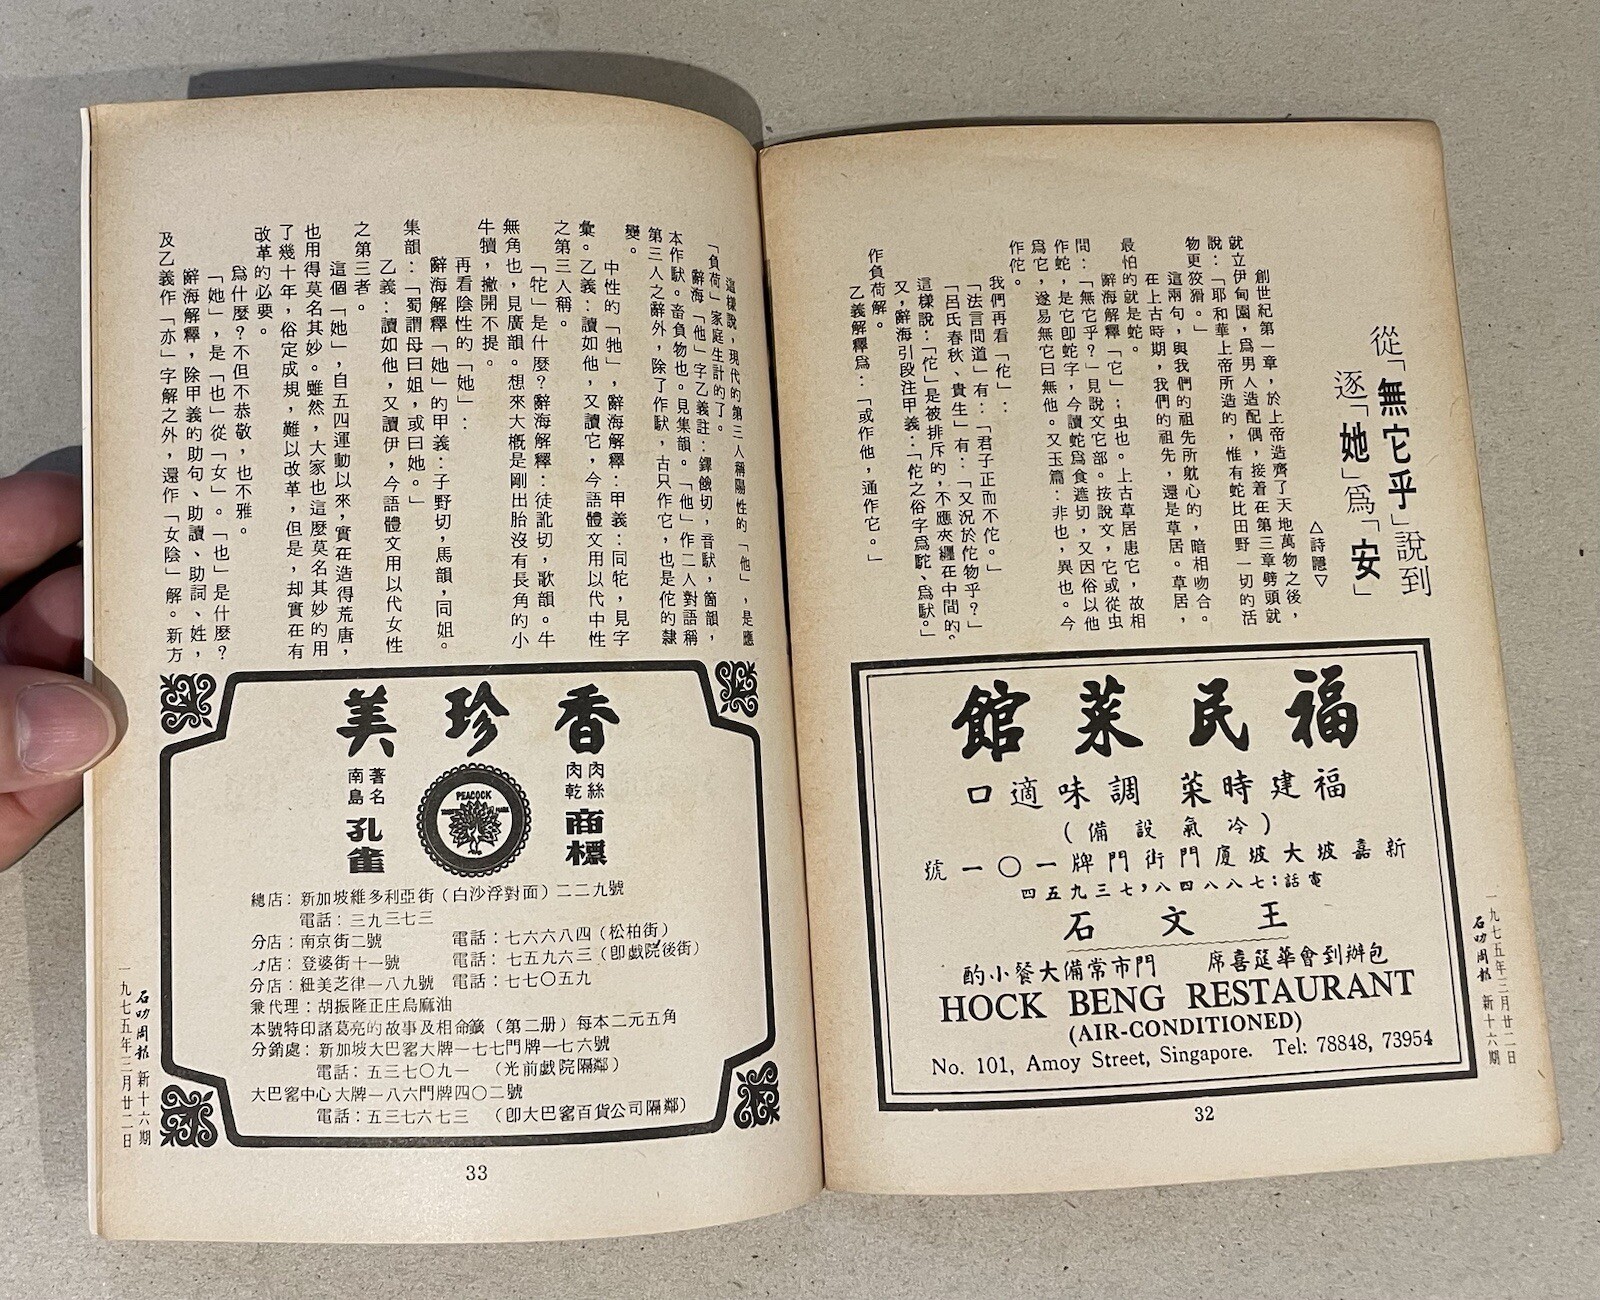 從「無它乎」說到
逐「她」為「安」
△詩聽▽
創世紀第一章，於上帝造齊了天地萬物之後，
就立伊甸園，為男人造配偶，接着在第三章劈頭就
說：「耶和華上帝所造的，惟有蛇比田野一切的活
物更狡猾。」
這兩句，與我們的祖先所躭心的，暗相吻合。
在上古時期，我們的祖先，還是草居。草居，
最怕的就是蛇。
辭海解釋「它」；虫也。上古草居患它，故相
問：「無它乎？」見說文它部。按說文，它或從虫
作蛇，是它卽蛇字，今讀蛇為食遮切，又因俗以他
為它，遂易無它曰無他。又玉篇：非也，異也。今
作佗。
我們再看「佗」：
「法言問道」有：「君子正而不佗。」
「呂氏春秋、貴生」有：「又況於佗物乎？」
這樣說：「佗」是被排斥的，不應來纒在中間的。
又，辭海引段注甲義：「佗之俗字為駝、為馱。」
作負荷解。
乙義解釋為：「或作他，通作它。」
福民菜館
福建時菜 調味適口
（冷氣設備）
新嘉坡大坡廈門街門牌一〇一號
電話：七八八四八，七三九五四
王文石
包辦到會華筵喜席 門市常備大餐小酌
HOCK BENG RESTAURANT
(AIR-CONDITIONED)
No. 101, Amoy Street, Singapore. Tel: 78848, 73954
一九七五年三月廿二日
石叻周報 新十六期
32
這樣說，現代的第三人稱陽性的「他」，是應
「負荷」家庭生計的了。
辭海「他」字乙義註：鐸餓切，音馱，箇韻，
本作馱。畜負物也。見集韻。「他」作二人對語稱
第三人之辭外，除了作馱，古只作它，也是佗的隸
變。
中性的「牠」，辭海解釋：甲義：同牝，見字
彙。乙義：讀如他，又讀它，今語體文用以代中性
之第三人稱。
「牝」是什麼？辭海解釋：徒訛切，歌韻。牛
無角也，見廣韻。想來大概是剛出胎沒有長角的小
牛犢，撇開不提。
再看陰性的「她」：
辭海解釋「她」的甲義：子野切，馬韻，同姐。
集韻：「蜀謂母曰姐，或曰她。」
乙義：讀如他，又讀伊，今語體文用以代女性
之第三者。
這個「她」，自五四運動以來，實在造得荒唐，
也用得莫名其妙。雖然，大家也這麼莫名其妙的用
了幾十年，俗定成規，難以改革，但是，却實在有
改革的必要。
為什麼？不但不恭敬，也不雅。
「她」，是「也」從「女」。「也」是什麼？
辭海解釋，除甲義的助句、助讀、助詞、姓，
及乙義作「亦」字解之外，還作「女陰」解。新方
香珍美
肉絲
肉乾
商標
PEACOCK
著名
南島
孔雀
總店：新加坡維多利亞街（白沙浮對面）二二九號
電話：三九三七三
分店：南京街二號 電話：七六六八四（松柏街）
分店：登婆街十一號 電話：七五九六三（卽戲院後街）
分店：紐美芝律一八九號 電話：七七〇五九
兼代理：胡振隆正庄烏麻油
本號特印諸葛亮的故事及相命籤（第二册）每本二元五角
分銷處：新加坡大巴窰大牌一七七門牌一七六號
電話：五三七〇九一（光前戲院隔鄰）
大巴窰中心大牌一八六門牌四〇二號
電話：五三七六七三（卽大巴窰百貨公司隔鄰）
石叻周報 新十六期
一九七五年三月廿二日
33